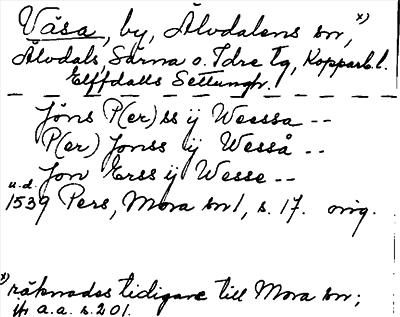 Våsa, by, Älvdalens sn, x)
Älvdals, Särna o. Idre tg, Kopparb. l.
Elffdalls Settungh.
Jöns P(er)ss ij Wesssa --
P(er) Jonss ij Wesså --
Jon Erss ij Wesse --
u.d.
1539 Pers, Mora sn 1, s. 17. orig.
x) räknades tidigare till Mora sn;
jfr a.a. s. 201.